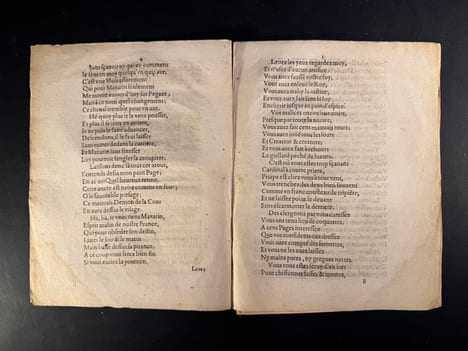 4
Sans sçauoir ny qui ny comment
Ie sens en moy quelqu'vn qui
C'est vne Muse asseurement
Qui pour Mazarin seulement
Me monte aujourd'huy sur Pegase;
Mais à ce non quel changement?
Ce cheual tremble pour vn
Hé quoy plus ie veux pousser,
Et plus il se tient en arriere,
Ie ne puis le faire aduancer,
Descendons, il se faut lasser
Sans donner dedans la carriere,
Et Mazarin sans finesse
Luy pourroit sangler la croupiere.
Laissons donc là tout cet atour,
I'entends desia mon petit Page;
En as-tu? Quel heureux retour,
Cette ancre est noire comme vn four;
O le fauorable presage!
Ce mauuais Demon de la Cour
En aura dessus le visage.
Ha, ha, ie vous tiens Mazarin,
Esprit malin de nostre France,
Qui pour obseder son destin,
Faites le soir & le matin
Main basse dessus sa pitance,
A ce coup vous serez bien fin
Si vous euitez la potence.
Leuez
5
Leuez les yeux regardez moy,
Et n'vsez d'aucun artifice,
Vous auez faussé vostre foy,
Vous auez enleué le Roy,
Vous auez
Vous auez fait en sans loy
Encherir jusqu'au pain d'espice.
Vos malices ont eu leur cours,
Presque par toute la nature,
Vous auez fait cent mauuais tours;
Et Createur & creature;
Et vous auez fait à rebours
Le gaillard peché de luxure.
C'est où vous estes trop sçauant
Cardinal à courte priere,
Priape est chez vous bien venu,
Vous tranchez des deux bien souuent
Comme vn franc cousteau de tripiere,
Et ne laissez point le deuant
Sans escamotter le derriere.
Des clergeons par vous caressez
Ont tenu lieu de coquettes,
A cent Pages interessez
Que vos confidents ont dressez
Vous auez compté des fleurettes,
Et vous ne les auez laissez
Ny mains pures, ny gregues nettes.
Vous vous estes
Pour chiffonner fesses & motte,
B